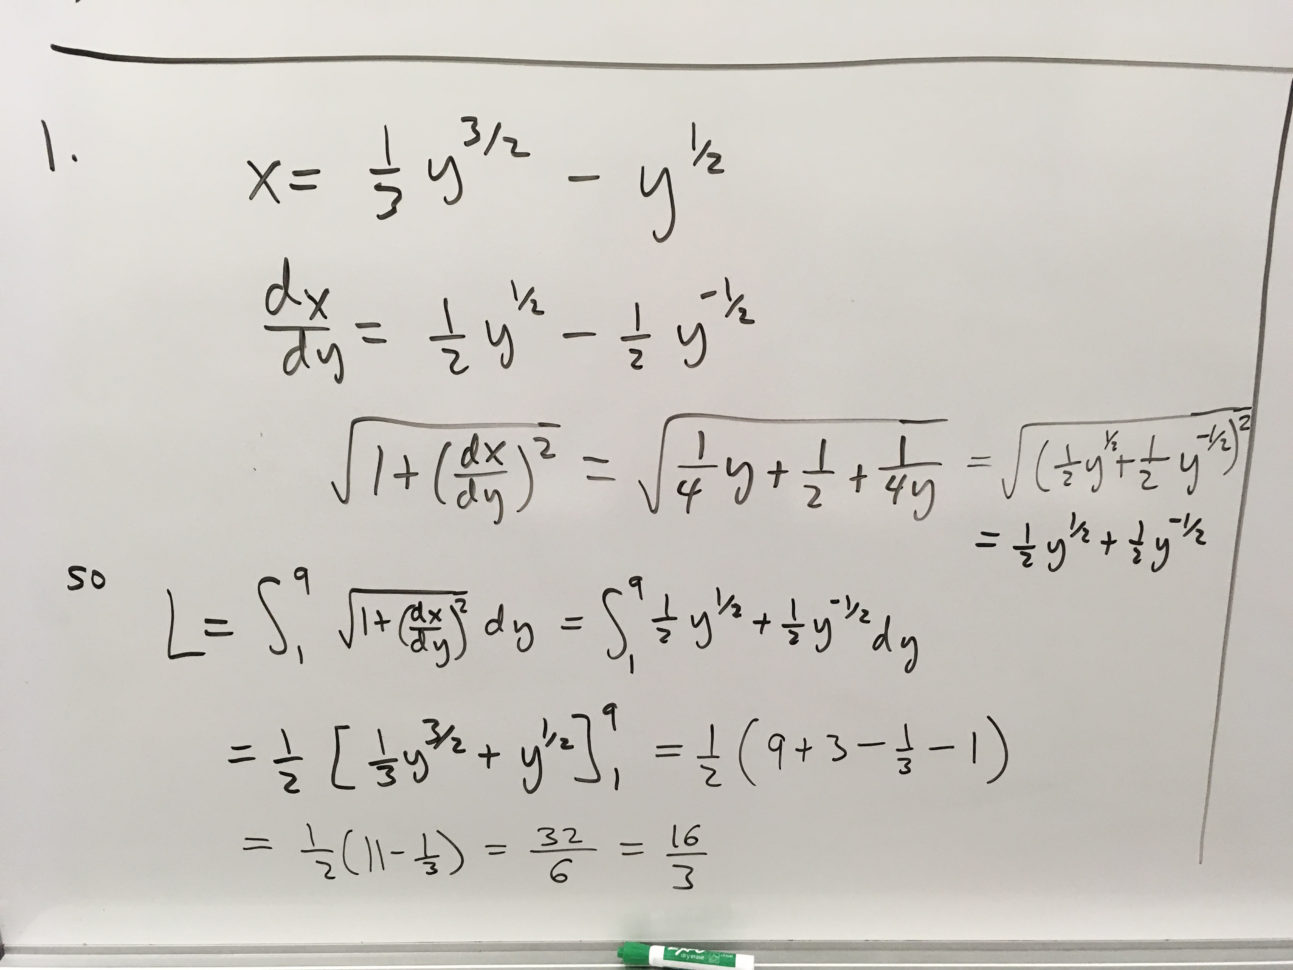 1.
x = 1/3 y^{3/2} - y^{1/2}
dx/dy = 1/2 y^{1/2} - 1/2 y^{-1/2}
√(1+(dx/dy)^2) = √(1/4 y + 1/2 + 1/(4y)) = √((1/2 y^{1/2} + 1/2 y^{-1/2})^2)
= 1/2 y^{1/2} + 1/2 y^{-1/2}
so L = ∫_1^9 √(1+(dx/dy)^2) dy = ∫_1^9 1/2 y^{1/2} + 1/2 y^{-1/2} dy
= 1/2 [1/3 y^{3/2} + y^{1/2}]_1^9 = 1/2 (9+3-1/3-1)
= 1/2 (11-1/3) = 32/6 = 16/3
dry erase